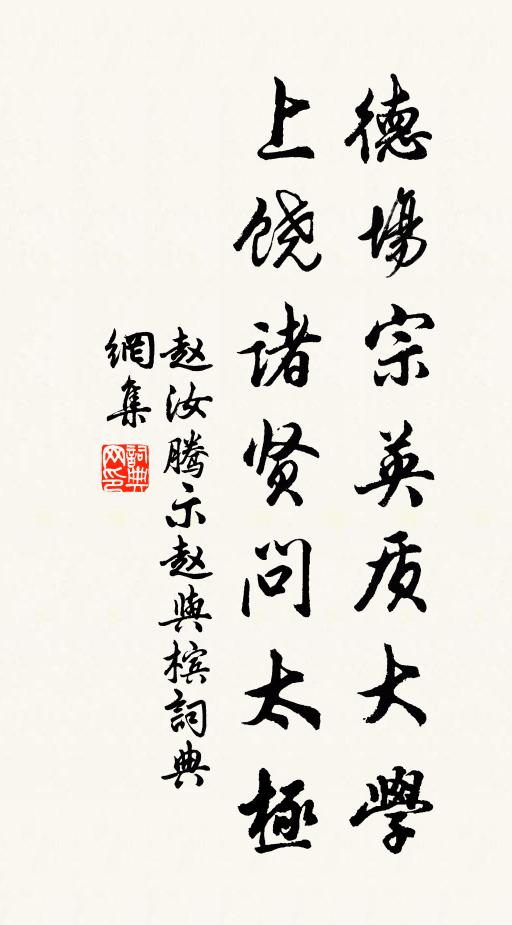 德場宗英质大學
上饶诸贤问太極
赵汝腾示赵與槟詞典
網集
詞典网印